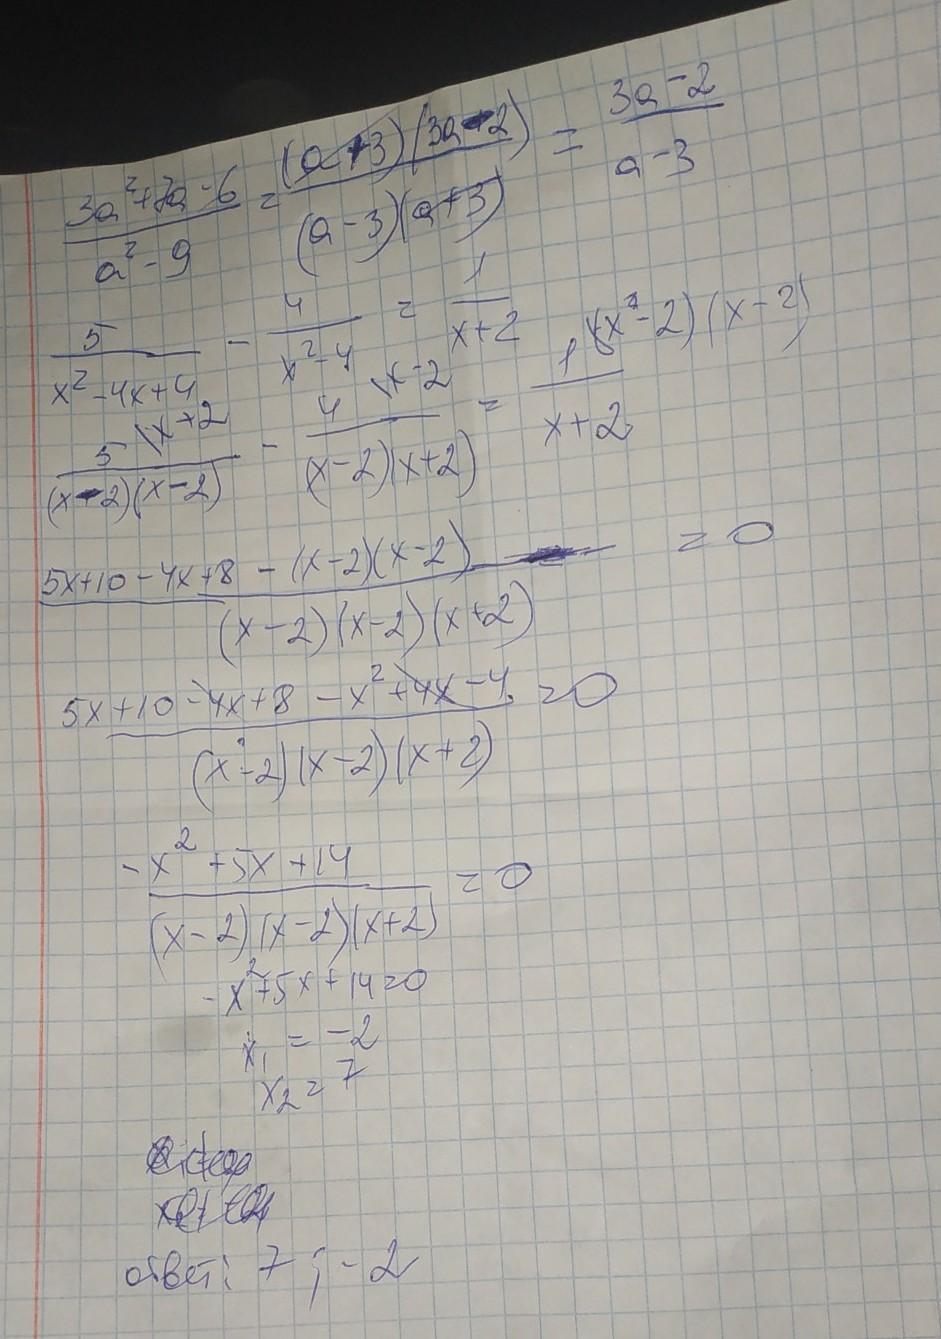 (3a²+7a-6)/(a²-9) = ((a+3)(3a-2))/((a-3)(a+3)) = (3a-2)/(a-3)
5/(x²-4x+4) - 4/(x²-4) = 1/(x+2)
5\x+2/((x-2)(x-2)) - 4\x-2/((x-2)(x+2)) = 1\(x-2)(x-2)/(x+2)
(5x+10-4x+8-(x-2)(x-2))/((x-2)(x-2)(x+2)) = 0
(5x+10-4x+8-x²+4x-4)/((x-2)(x-2)(x+2)) = 0
(-x²+5x+14)/((x-2)(x-2)(x+2)) = 0
-x²+5x+14=0
x₁ = -2
x₂ = 7
ответ: 7; -2